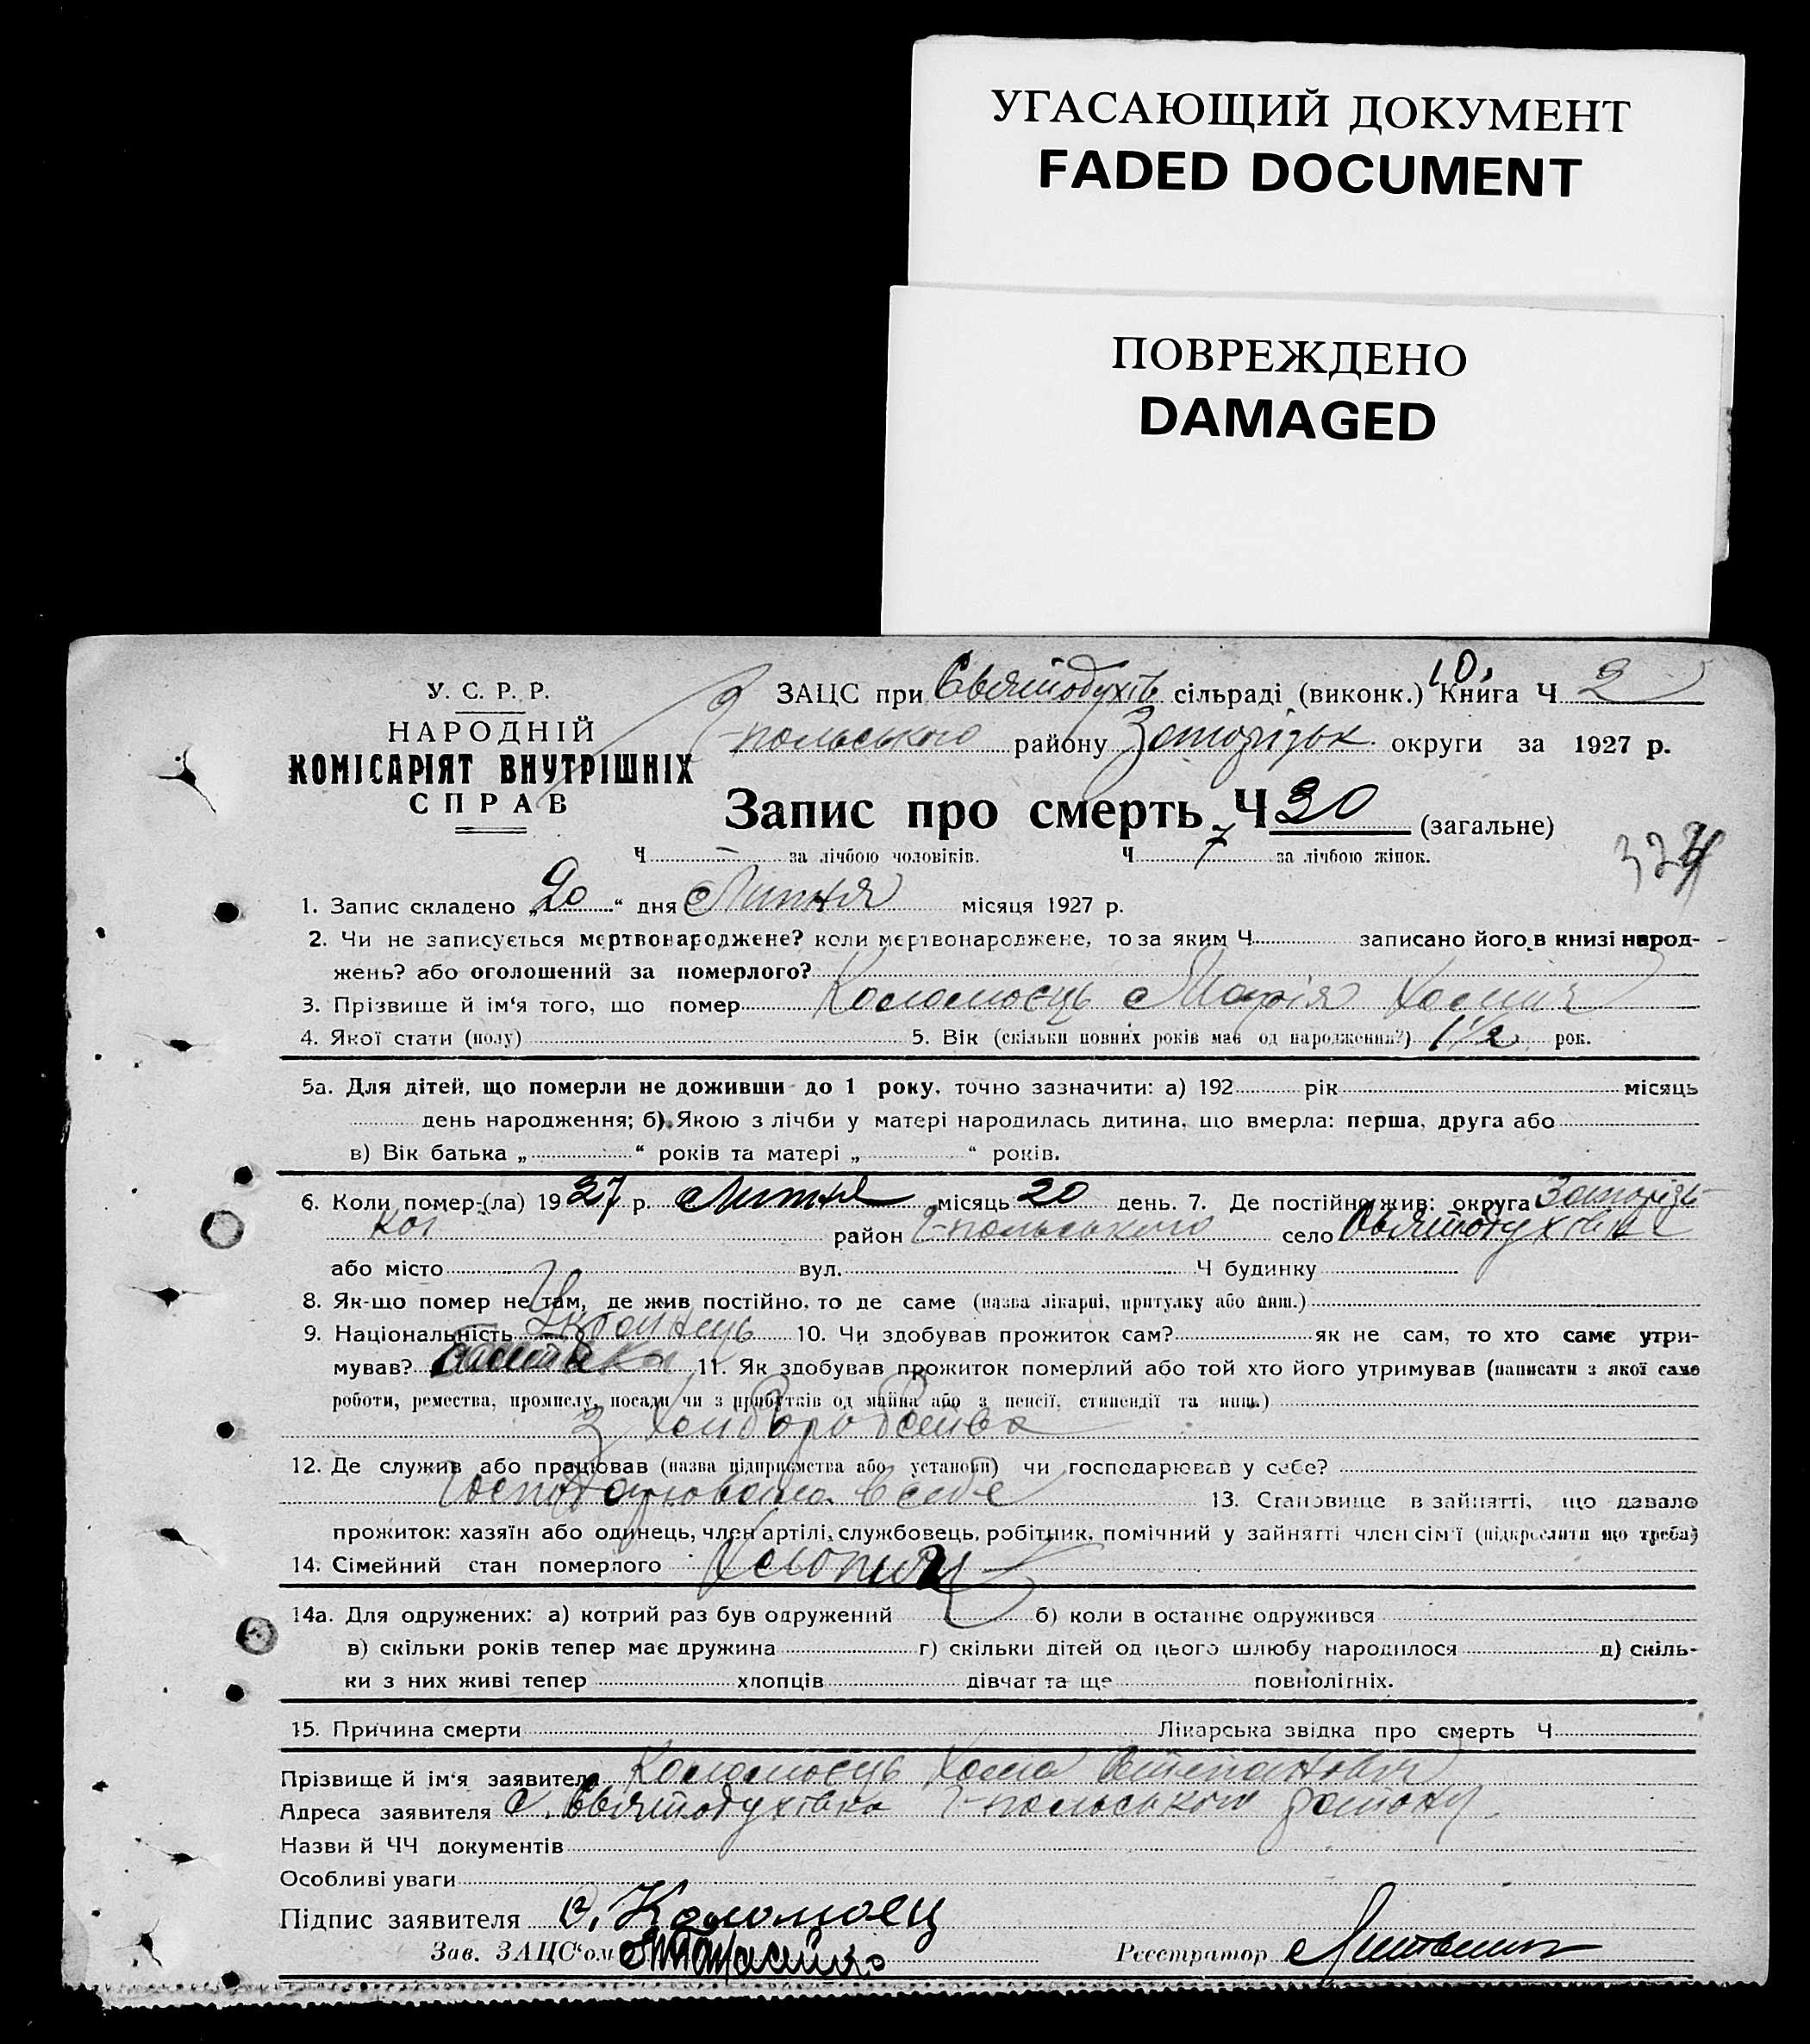 УГАСАЮЩИЙ ДОКУМЕНТ
FADED DOCUMENT
ПОВРЕЖДЕНО
DAMAGED
У. С. Р. Р.
НАРОДНІЙ
КОМІСАРІЯТ ВНУТРІШНІХ
СПРАВ
10.
ЗАЦС при Святодухів сільраді (виконк.) Книга Ч 2
-польського району Запорізьк. округи за 1927 р.
Запис про смерть Ч 30 (загальне)
Ч - за лічбою чоловіків. Ч 7 за лічбою жінок.
1. Запис складено „20“ дня Липня місяця 1927 р.
2. Чи не записується мертвонароджене? коли мертвонароджене, то за яким Ч записано його в книзі народ-
жень? або оголошений за померлого?
3. Прізвище й ім‘я того, що помер Коломоєць Марія
4. Якої стати (полу) 5. Вік (скільки повних років має од народження?) 1½ рок.
5а. Для дітей, що померли не доживши до 1 року, точно зазначити: а) 192 рік місяць
день народження; б) Якою з лічби у матері народилась дитина, що вмерла: перша, друга або
в) Вік батька „ “ років та матері „ “ років.
6. Коли помер-(ла) 1927 р. Липня місяць 20 день. 7. Де постійно жив: округа Запорізь-
кої район -польського село Святодухівка
або місто вул. Ч будинку
8. Як-що помер не там, де жив постійно, то де саме (назва лікарні, притулку або инш.)
9. Національність Українець 10. Чи здобував прожиток сам? як не сам, то хто саме утри-
мував? 11. Як здобував прожиток померлий або той хто його утримував (написати з якої саме
роботи, ремества, промислу, посади чи з прибутків од майна або з пенсії, стипендії та инш.)
з Хліборобства
12. Де служив або працював (назва підприємства або установи) чи господарював у себе?
Господарювала в себе 13. Становище в зайнятті, що давало
прожиток: хазяїн або одинець, член артілі, службовець, робітник, помічний у зайнятті член сім‘ї (підкреслити що треба)
14. Сімейний стан померлого
14а. Для одружених: а) котрий раз був одружений б) коли в останнє одружився
в) скільки років тепер має дружина г) скільки дітей од цього шлюбу народилося д) скіль-
ки з них живі тепер хлопців дівчат та ще повнолітніх.
15. Причина смерти Лікарська звідка про смерть Ч
Прізвище й ім‘я заявителя Коломоєць Хома Степанович
Адреса заявителя с. Святодухівка -польського району
Назви й ЧЧ документів
Особливі уваги
Підпис заявителя Коломоец
Зав. ЗАЦС‘ом Реєстратор